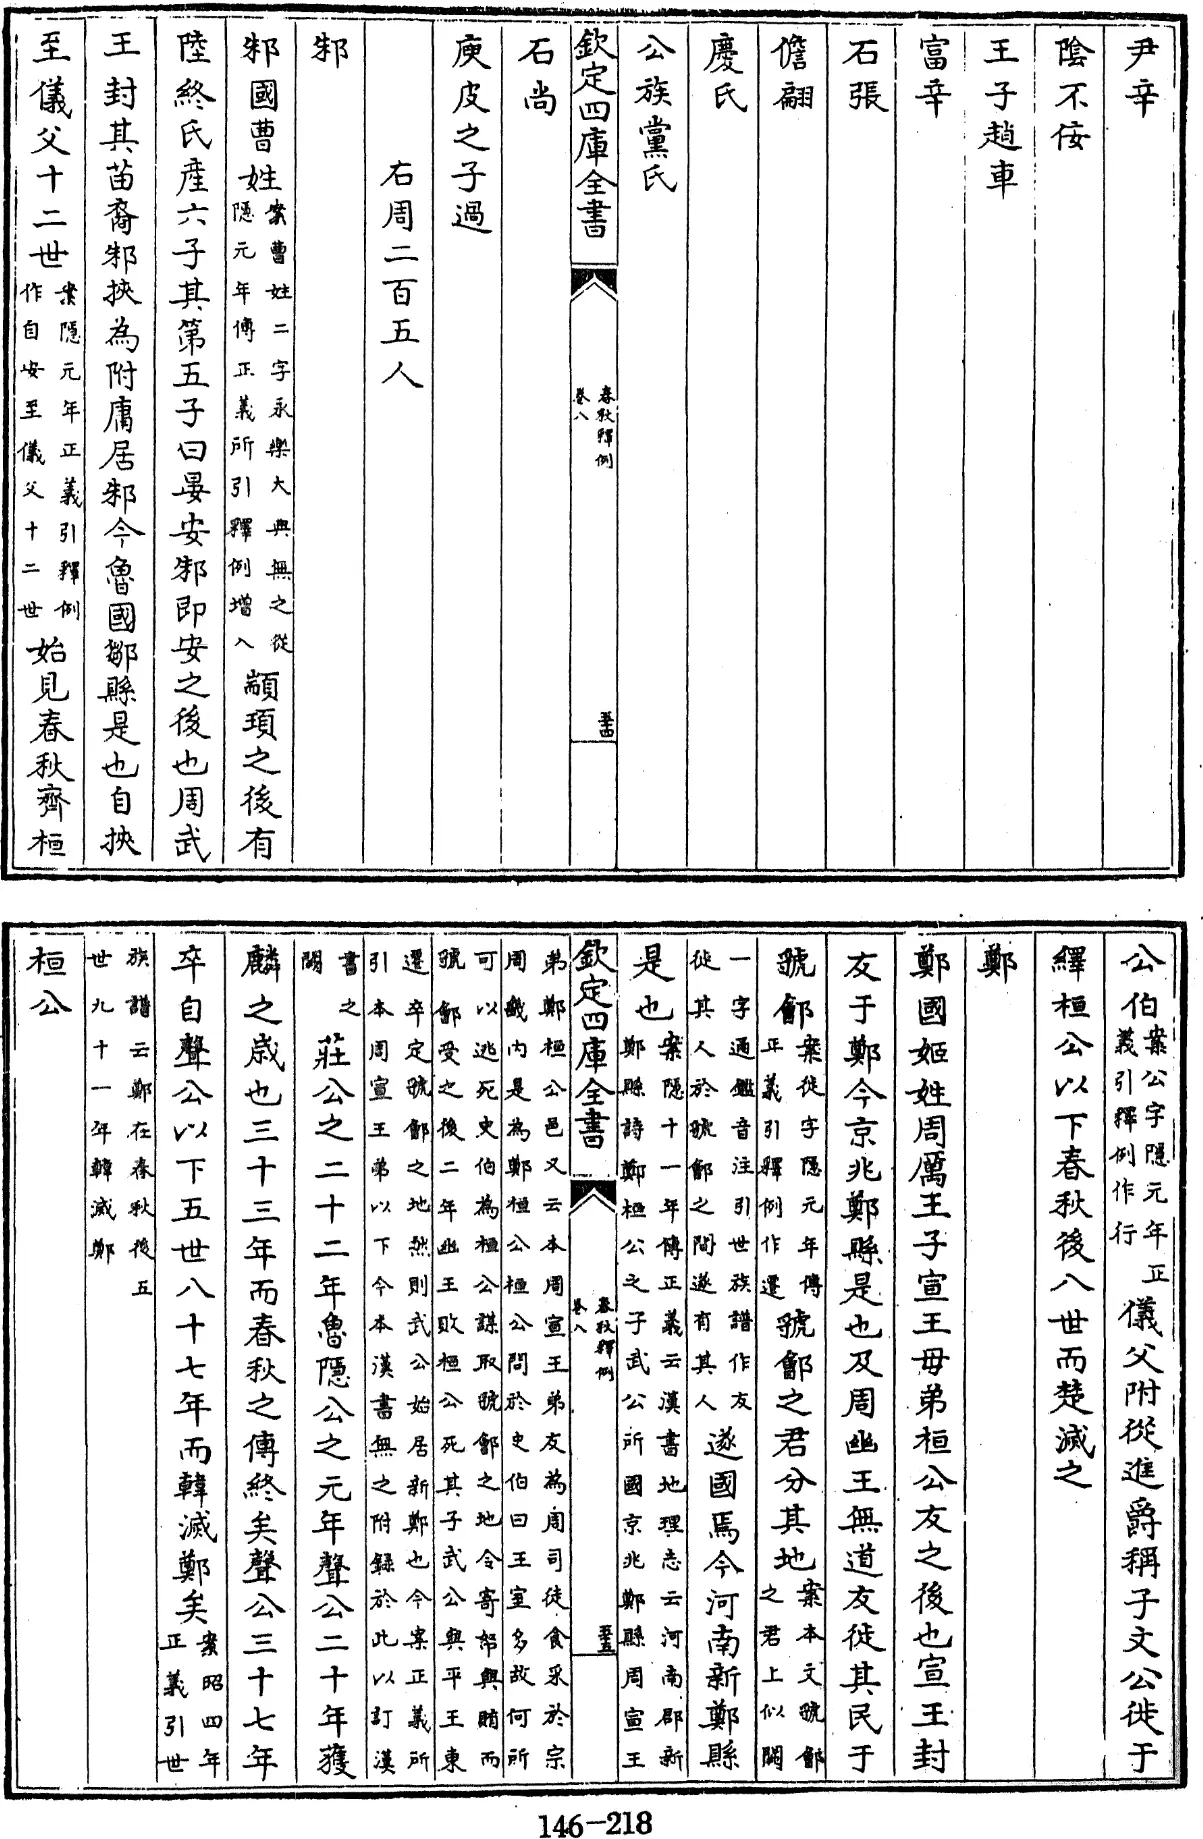 尹辛
陰不佞
王子趙車
富辛
石張
儋翩
慶氏
公族黨氏
欽定四庫全書
春秋釋例
卷八
至四
石尚
庾皮之子過
右周二百五人
邾
邾國曹姓案曹姓二字永樂大典無之從
隱元年傳正義所引釋例增入顓頊之後有
陸終氏產六子其第五子曰晏安邾即安之後也周武
王封其苗裔邾挾為附庸居邾今魯國鄒縣是也自挾
至儀父十二世案隱元年正義引釋例
作自安至儀父十二世始見春秋齊桓
公伯案公字隱元年正
義引釋例作行儀父附從進爵稱子文公徙于
繹桓公以下春秋後八世而楚滅之
鄭
鄭國姬姓周厲王子宣王母弟桓公友之後也宣王封
友于鄭今京兆鄭縣是也及周幽王無道友徙其民于
虢鄶案徙字隱元年傳
正義引釋例作遷虢鄶之君分其地案本文虢鄶
之君上似闕
一字通鑑音注引世族譜作友
徙其人於虢鄶之間遂有其人遂國焉今河南新鄭縣
是也案隱十一年傳正義云漢書地理志云河南郡新
鄭縣詩鄭桓公之子武公所國京兆鄭縣周宣王
欽定四庫全書
春秋釋例
卷八
至五
弟鄭桓公邑又云本周宣王弟友為周司徒食采於宗
周畿內是為鄭桓公桓公問於史伯曰王室多故何所
可以逃死史伯為桓公謀取虢鄶之地令寄帑與賄而
虢鄶受之後二年幽王敗桓公死其子武公與平王東
遷卒定虢鄶之地然則武公始居新鄭也今案正義所
引本周宣王弟以下今本漢書無之附錄於此以訂漢
書之
闕莊公之二十二年魯隱公之元年聲公二十年獲
麟之歲也三十三年而春秋之傳終矣聲公三十七年
卒自聲公以下五世八十七年而韓滅鄭矣案昭四年
正義引世
族譜云鄭在春秋後五
世九十一年韓滅鄭
桓公
146-218